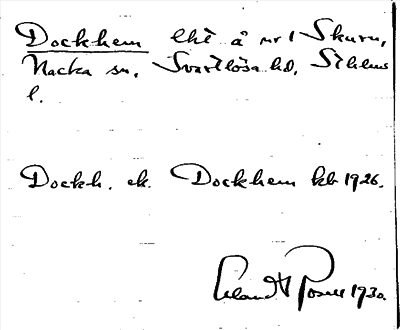 Dockhem lht å nr 1 Skuru,
Nacka sn, Svartlösa hd, Sthlms
l.
Dockh. ek. Dockhem kb 1926.
Erland Rosell 1930.